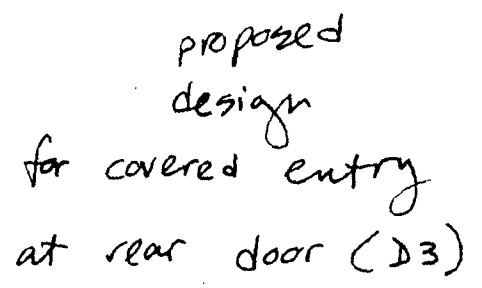 proposed
design
for covered entry
at rear door (D3)